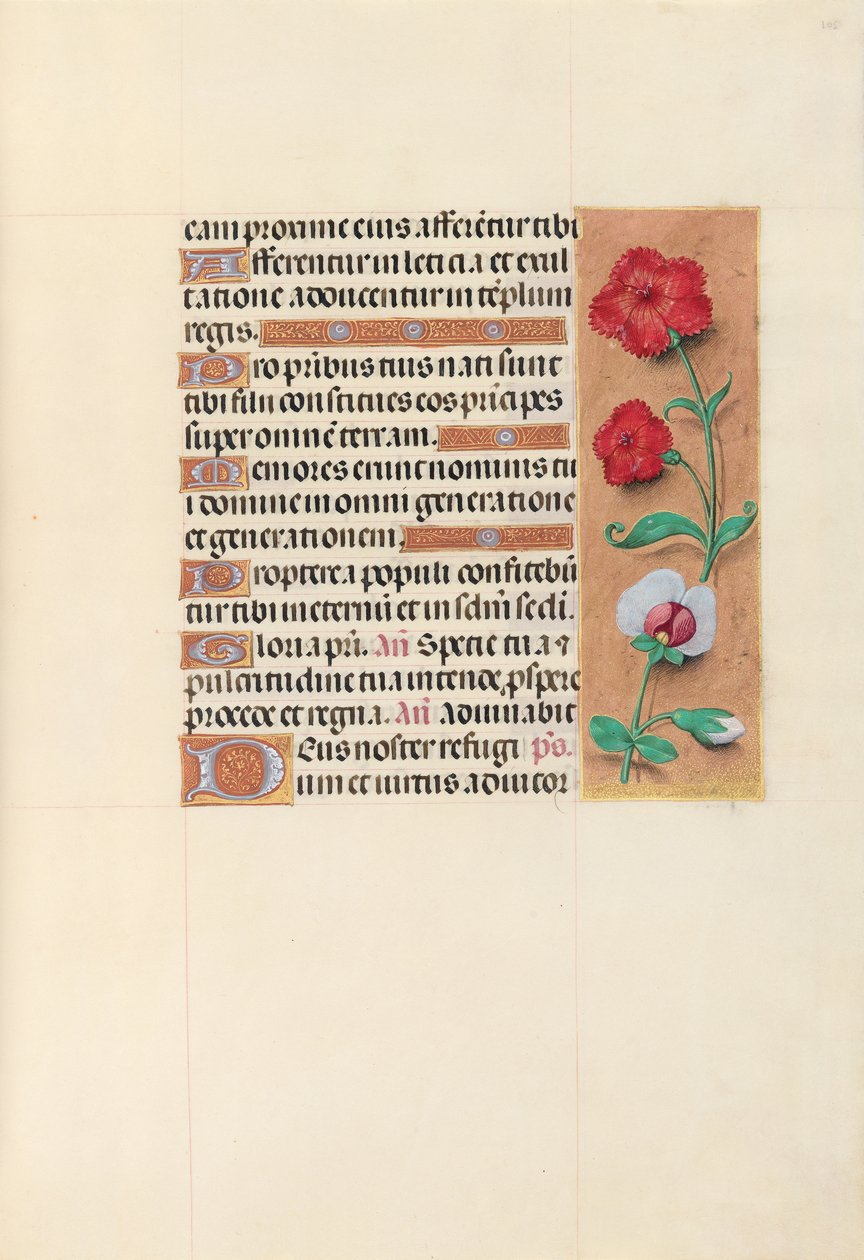 105
eam proxime eius afferẽtur tibi
Afferentur in leticia et exul
tatione adducentur in tẽplum
regis.
Pro pr̃ibus tuis nati sunt
tibi filii constitues eos prĩcipes
super omnẽ terram.
Memores erunt nominis tu
i domine in omni generatione
et generationem.
Propterea populi confitebũ
tur tibi in eternũ et in sclm̃ scľi.
Gloria pr̃i. Añ Specie tua ⁊
pulcritudine tua intende, ꝓspere
procede et regna. Añ Adiuuabit
Deus noster refugi p̃s.
um et uirtus adiutor